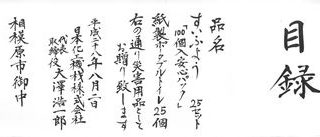 目録
品名
すいふよう 25セット
「100個で安心パック」
紙製ポータブルトイレ 25個
右の通り災害用品として
お贈り致します
平成二十八年八月二日
日本化工機材株式会社
代表
取締役 大澤浩一郎
相模原市御中